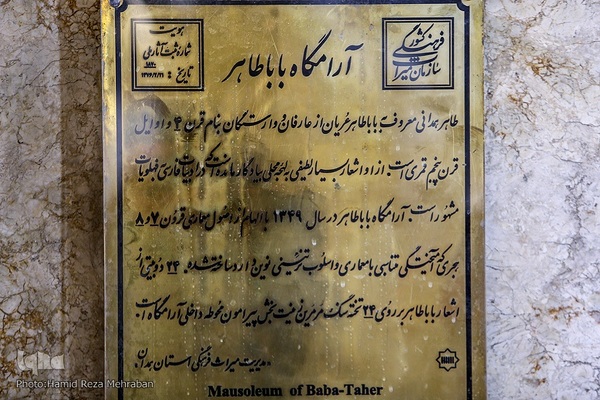 سازمان میراث فرهنگی کشور
هویت
شماره ثبت آثار ملی
تاریخ : ۱۳۷۶/۲/۲۱
آرامگاه باباطاهر
طاهر همدانی معروف به باباطاهر عریان از عارفان و وارستگان بنام قرن ۴ و اوایل
قرن پنجم قمری است. از او اشعار بسیار لطیفی به لهجه محلی بیادگار مانده است که در ادبیات فارسی به فهلویات
مشهور است. آرامگاه باباطاهر در سال ۱۳۴۹ با الهام از اصول معماری قرون ۷ و ۸
هجری که آمیختگی متناسبی با معماری و اسلوب تزئینی نوین دارد ساخته شده. ۲۴ دوبیتی از
اشعار باباطاهر بر روی ۲۴ تخته سنگ مرمرین زینت بخش پیرامون محوطه داخلی آرامگاه است
مدیریت میراث فرهنگی استان همدان
Mausoleum of Baba-Taher
Photo:Hamid Reza Mehraban